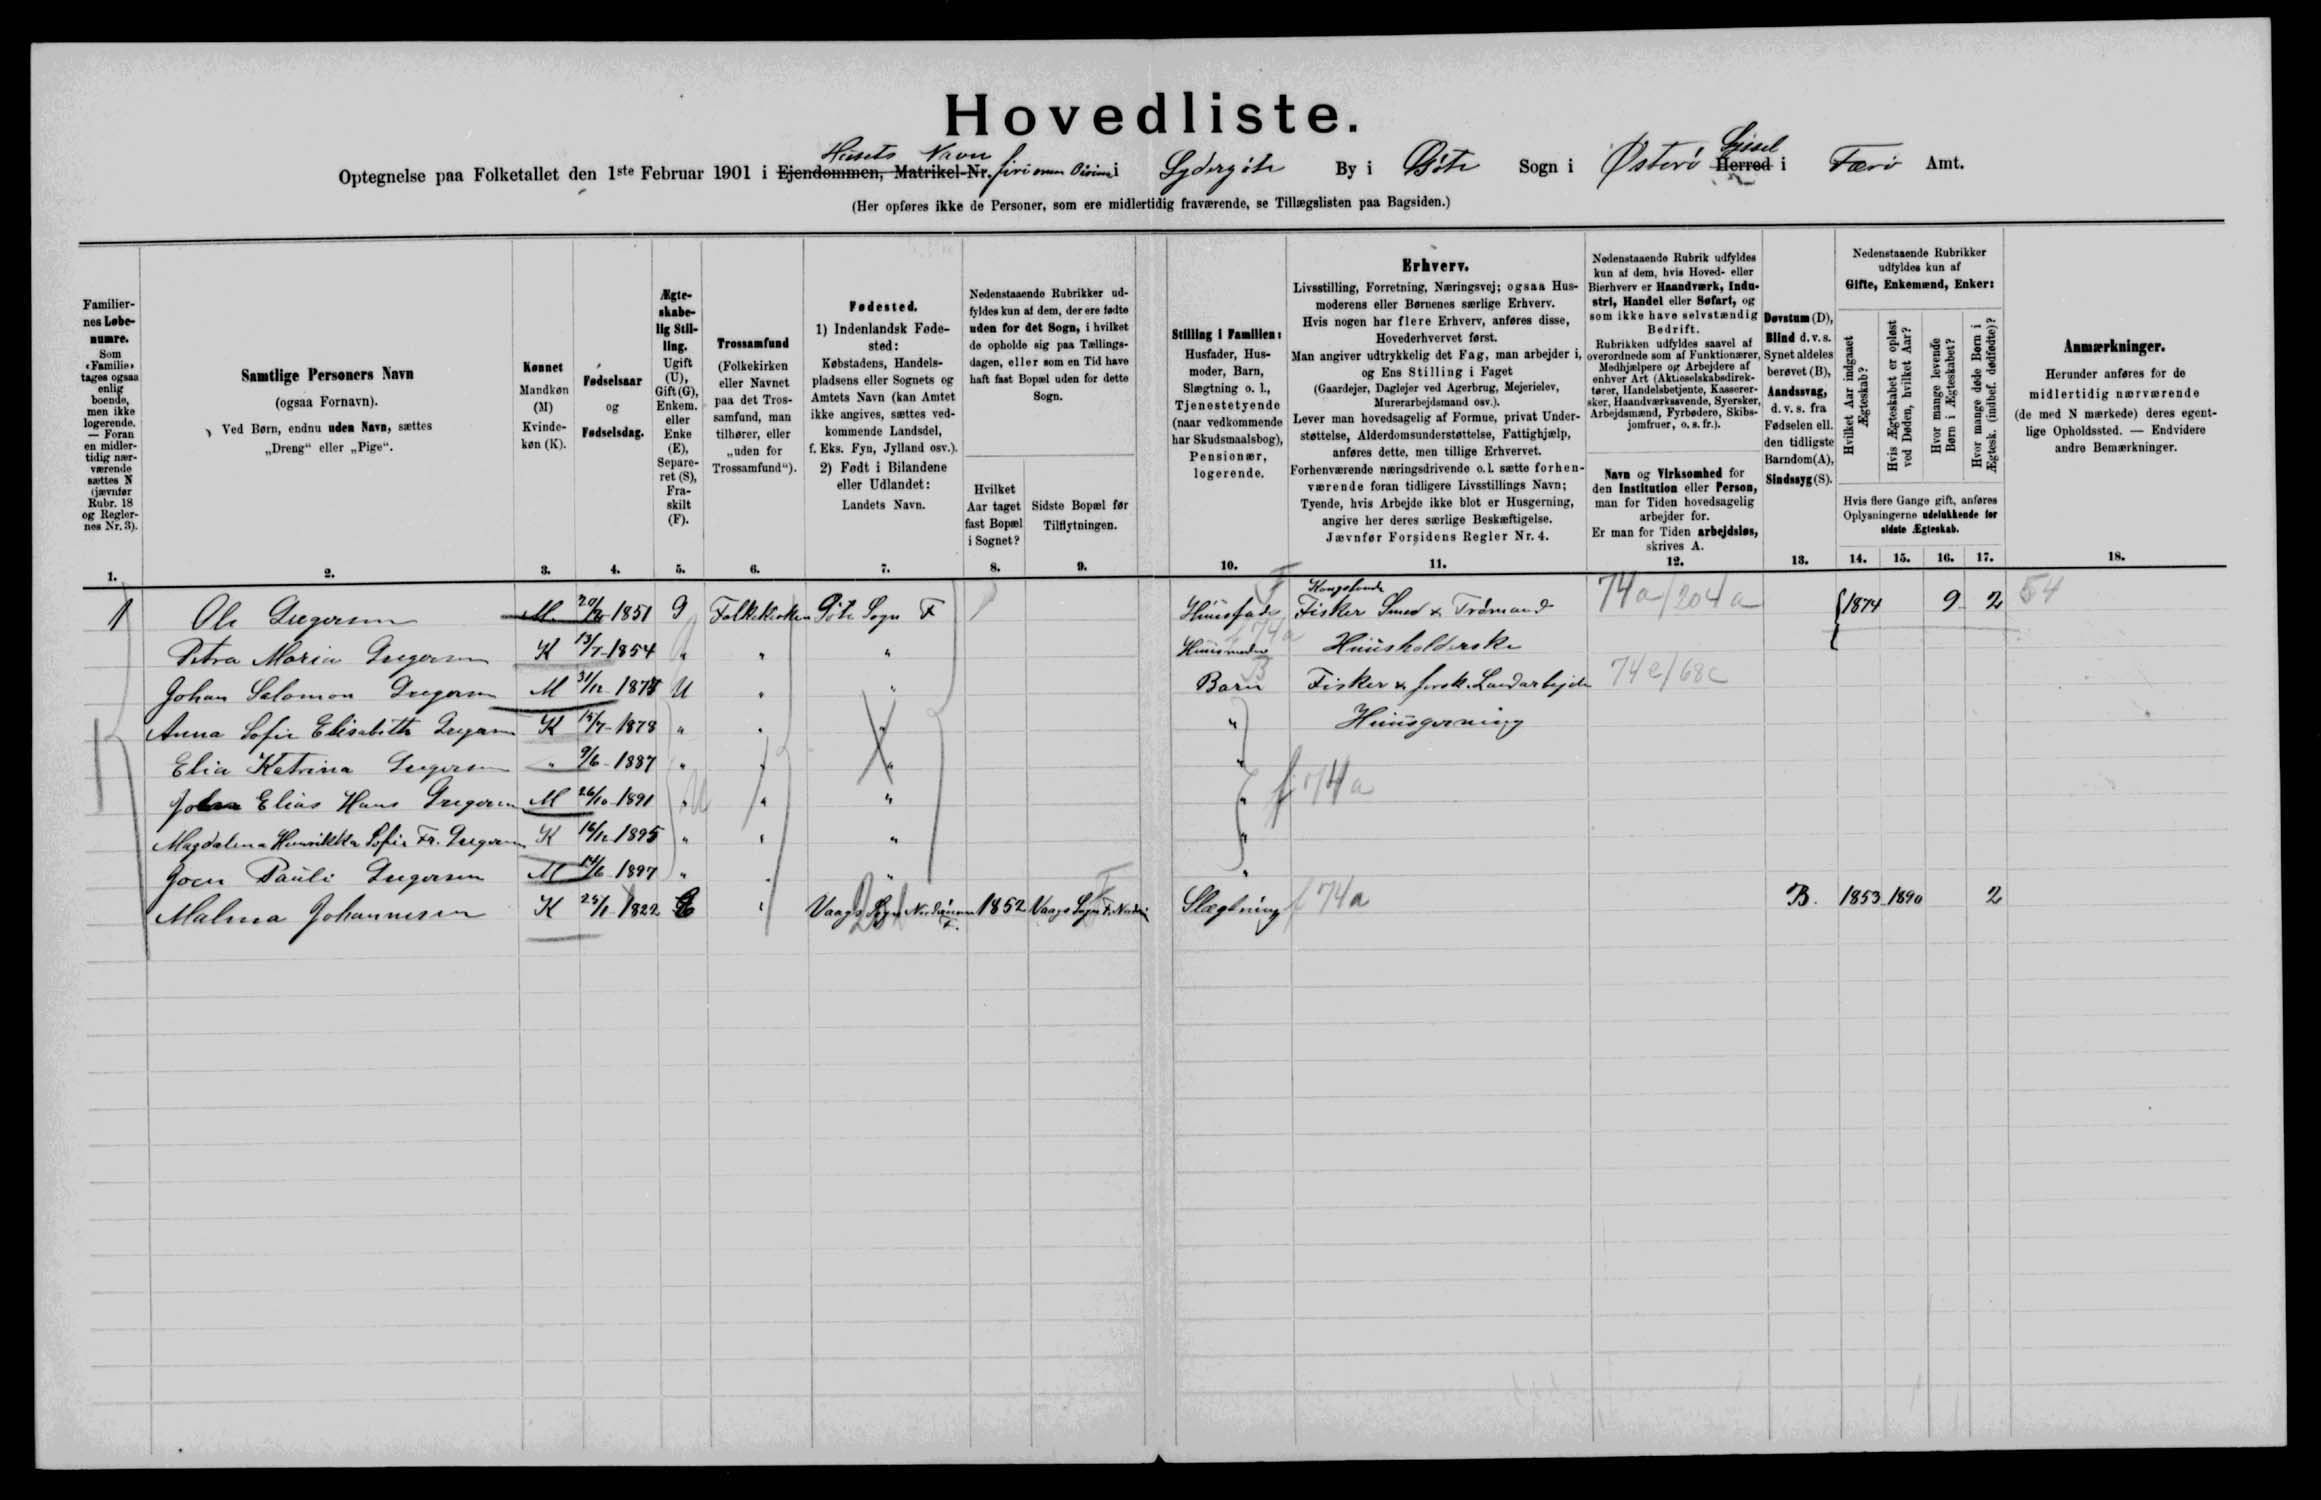 Hovedliste.
Husets Navn Sysel
Optegnelse paa Folketallet den 1ste Februar 1901 i Ejendommen, Matrikel-Nr. i Sydergöte By i Göte Sogn i Österö Herred i Færö Amt.
(Her opføres ikke de Personer, som ere midlertidig fraværende, se Tillægslisten paa Bagsiden.)
Familiernes Løbenumre.
Som «Familie» tages ogsaa enlig boende, men ikke logerende. — Foran en midlertidig nærværende sættes N (jævnfør Rubr. 18 og Reglernes Nr. 3).
1.
Samtlige Personers Navn
(ogsaa Fornavn).
Ved Børn, endnu uden Navn, sættes
„Dreng" eller „Pige".
2.
Kønnet
Mandkøn (M) Kvindekøn (K).
3.
Fødselsaar
og
Fødselsdag.
4.
Ægteskabelig Stilling.
Ugift (U), Gift (G), Enkem. eller Enke (E), Separeret (S), Fraskilt (F).
5.
Trossamfund
(Folkekirken eller Navnet paa det Trossamfund, man tilhører, eller „uden for Trossamfund").
6.
Fødested.
1) Indenlandsk Fødested:
Købstadens, Handelspladsens eller Sognets og Amtets Navn (kan Amtet ikke angives, sættes vedkommende Landsdel, f. Eks. Fyn, Jylland osv.).
2) Født i Bilandene eller Udlandet:
Landets Navn.
7.
Nedenstaaende Rubrikker udfyldes kun af dem, der ere fødte uden for det Sogn, i hvilket de opholde sig paa Tællingsdagen, eller som en Tid have haft fast Bopæl uden for dette Sogn.
Hvilket Aar taget fast Bopæl i Sognet?
8.
Sidste Bopæl før Tilflytningen.
9.
Stilling i Familien:
Husfader, Husmoder, Barn, Slægtning o. l., Tjenestetyende (naar vedkommende har Skudsmaalsbog), Pensionær, logerende.
10.
Erhverv.
Livsstilling, Forretning, Næringsvej; ogsaa Husmoderens eller Børnenes særlige Erhverv.
Hvis nogen har flere Erhverv, anføres disse, Hovederhvervet først.
Man angiver udtrykkelig det Fag, man arbejder i, og Ens Stilling i Faget
(Gaardejer, Daglejer ved Agerbrug, Mejerielev, Murerarbejdsmand osv.).
Lever man hovedsagelig af Formue, privat Understøttelse, Alderdomsunderstøttelse, Fattighjælp, anføres dette, men tillige Erhvervet.
Forhenværende næringsdrivende o. l. sætte forhenværende foran tidligere Livsstillings Navn;
Tyende, hvis Arbejde ikke blot er Husgerning, angive her deres særlige Beskæftigelse.
Jævnfør Forsidens Regler Nr. 4.
11.
Nedenstaaende Rubrik udfyldes kun af dem, hvis Hoved- eller Bierhverv er Haandværk, Industri, Handel eller Søfart, og som ikke have selvstændig Bedrift.
Rubrikken udfyldes saavel af overordnede som af Funktionærer, Medhjælpere og Arbejdere af enhver Art (Aktieselskabsdirektører, Handelsbetjente, Kasserersker, Haandværkssvende, Syersker, Arbejdsmænd, Fyrbødere, Skibsjomfruer, o. s. fr.).
Navn og Virksomhed for den Institution eller Person, man for Tiden hovedsagelig arbejder for.
Er man for Tiden arbejdsløs, skrives A.
12.
Døvstum (D), Blind d. v. s. Synet aldeles berøvet (B), Aandssvag, d. v. s. fra Fødselen ell. den tidligste Barndom (A), Sindssyg (S).
13.
Nedenstaaende Rubrikker udfyldes kun af
Gifte, Enkemænd, Enker:
Hvilket Aar indgaaet Ægteskab?
Hvis Ægteskabet er opløst ved Døden, hvilket Aar?
Hvor mange levende Børn i Ægteskabet?
Hvor mange døde Børn i Ægtesk. (indbef. dødfødte)?
Hvis flere Gange gift, anføres Oplysningerne udelukkende for sidste Ægteskab.
14. 15. 16. 17.
Anmærkninger.
Herunder anføres for de midlertidig nærværende (de med N mærkede) deres egentlige Opholdssted. — Endvidere andre Bemærkninger.
18.
1 Ole Gregersen M 1851 G Folkekirken Göte Sogn F Huusfader Fisker Smed & 74a/204a 1874 9 2 54
Petra Maria Gregersen K 13/7-1854 " " " Huusmoder Huusholderske
Johan Salomon Gregersen M 31/12-1875 U " " Barn Fisker & 74e/68c
Anna Sofie Elisabeth Gregersen K 1878 " " " " Huusgerning
Elia Katrina Gregersen " 9/6-1887 " " " "
Elias Hans Gregersen M 26/10-1891 " " " " f 74a
Magdalena Henrikka Sofie Fr. Gregersen K 16/12 1895 " " " "
Joen Pauli Gregersen M 14/6-1897 " " " "
Malma Johannesen K 25/1-1822 E " Vaags Sogn 1852 Vaags Sogn Slægtning f 74a B. 1853 1890 2